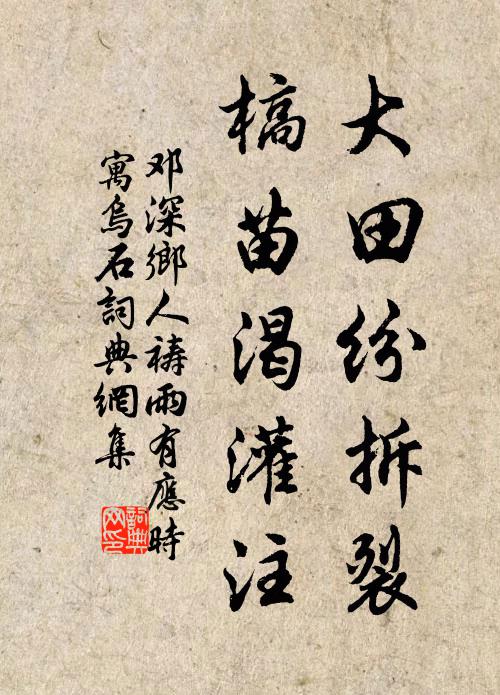 大田纷拆裂
槁苗渴灌注
邓深鄉人祷雨有應時
寓烏石詞典網集
詞典网印